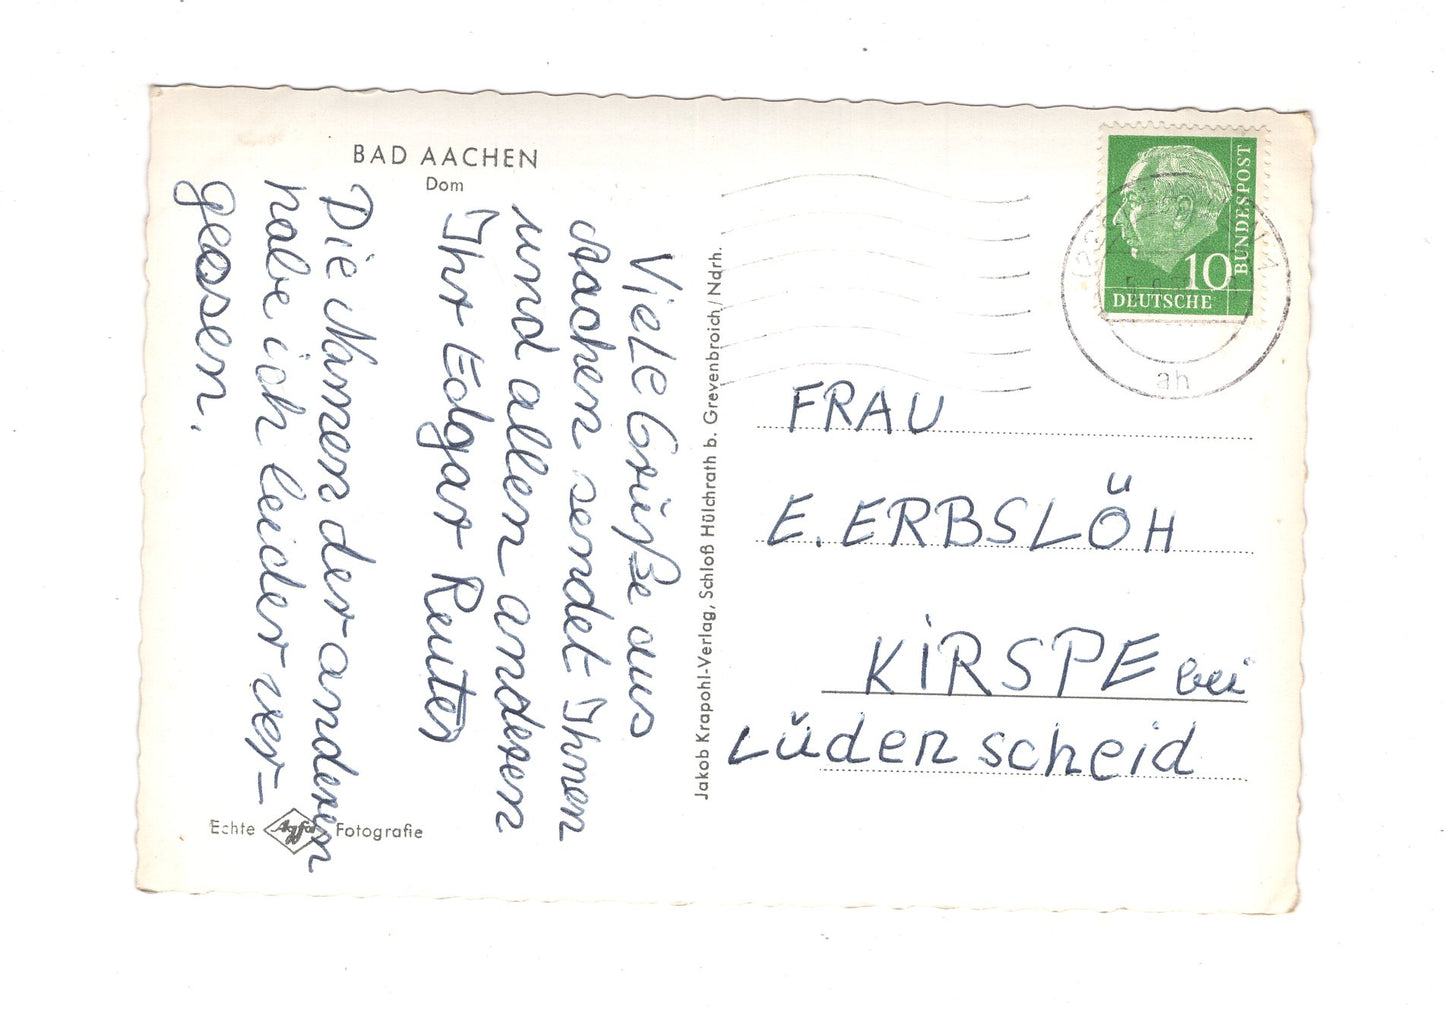 BAD AACHEN
Dom
Viele Grüße aus
Aachen sendet Ihnen
und allen anderen
Ihr Edgar Reuter
Die Namen der anderen
habe ich leider ver-
gessen.
Echte Agfa Fotografie
Jakob Krapohl-Verlag, Schloß Hülchrath b. Grevenbroich/Ndrh.
10
DEUTSCHE
BUNDESPOST
ah
FRAU
E. ERBSLÖH
KIRSPE bei
Lüdenscheid